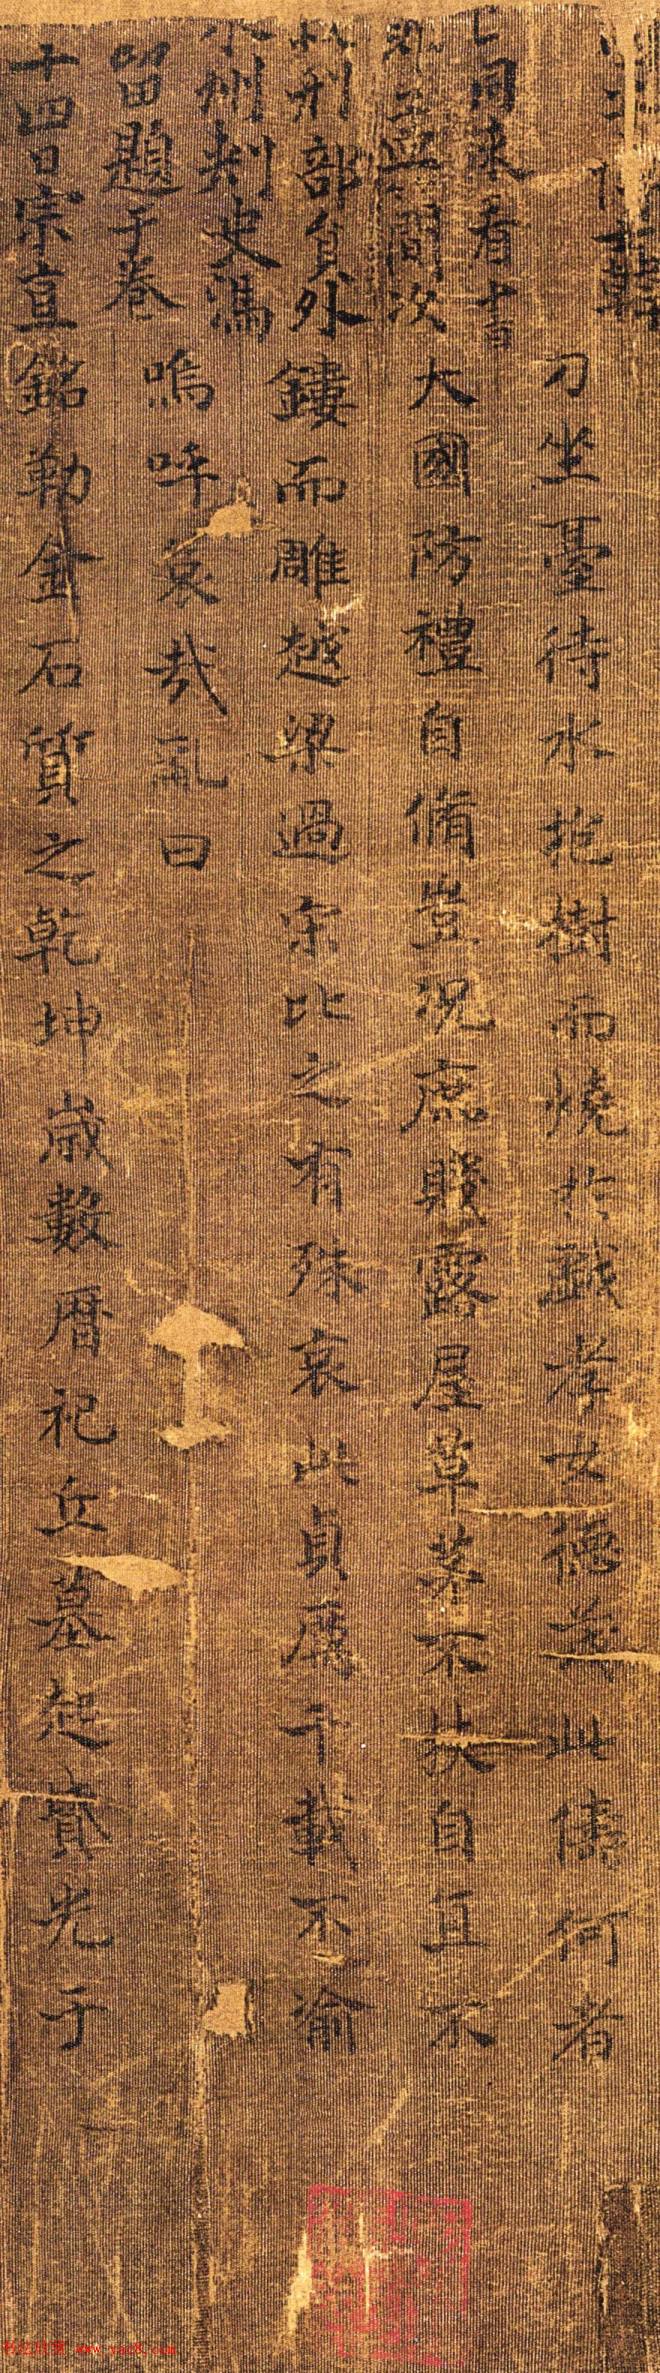 同來看
間次
刑部員外
州刺史馮
留題于卷
十四日宗直
刀坐臺待水抱樹而燒於戲孝女德茂此儔何者
大國防禮自脩豈況庶賤露屋草茅不扶自直不
鏤而雕越梁過宋比之有殊哀此貞厲千載不渝
嗚呼哀哉亂曰
銘勒金石質之乾坤歲數曆祀丘墓起墳光于
www.yac8.com